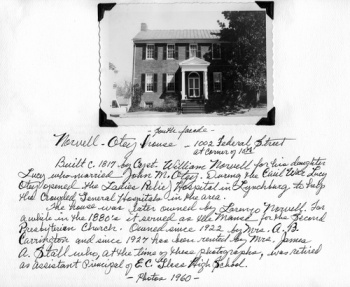 South facade -
Norvell - Otey House - 1002 Federal Street
at corner of 10th
Built c. 1817 by Capt. William Norvell for his daughter
Lucy, who married John M. Otey. During the Civil War Lucy
Otey opened the Ladies Relief Hospital in Lynchburg to help
the crowded General Hospitals in the area.
The house was later owned by Lorenzo Norvell. For
a while in the 1880's it served as the Manse for the Second
Presbyterian Church. Owned since 1922 by Mrs. A. B.
Carrington and since 1927 has been rented by Mrs. James
A. Stall who, at the time of these photographs, was retired
as Assistant Principal of E.C. Glass High School.
- Photos 1960 -